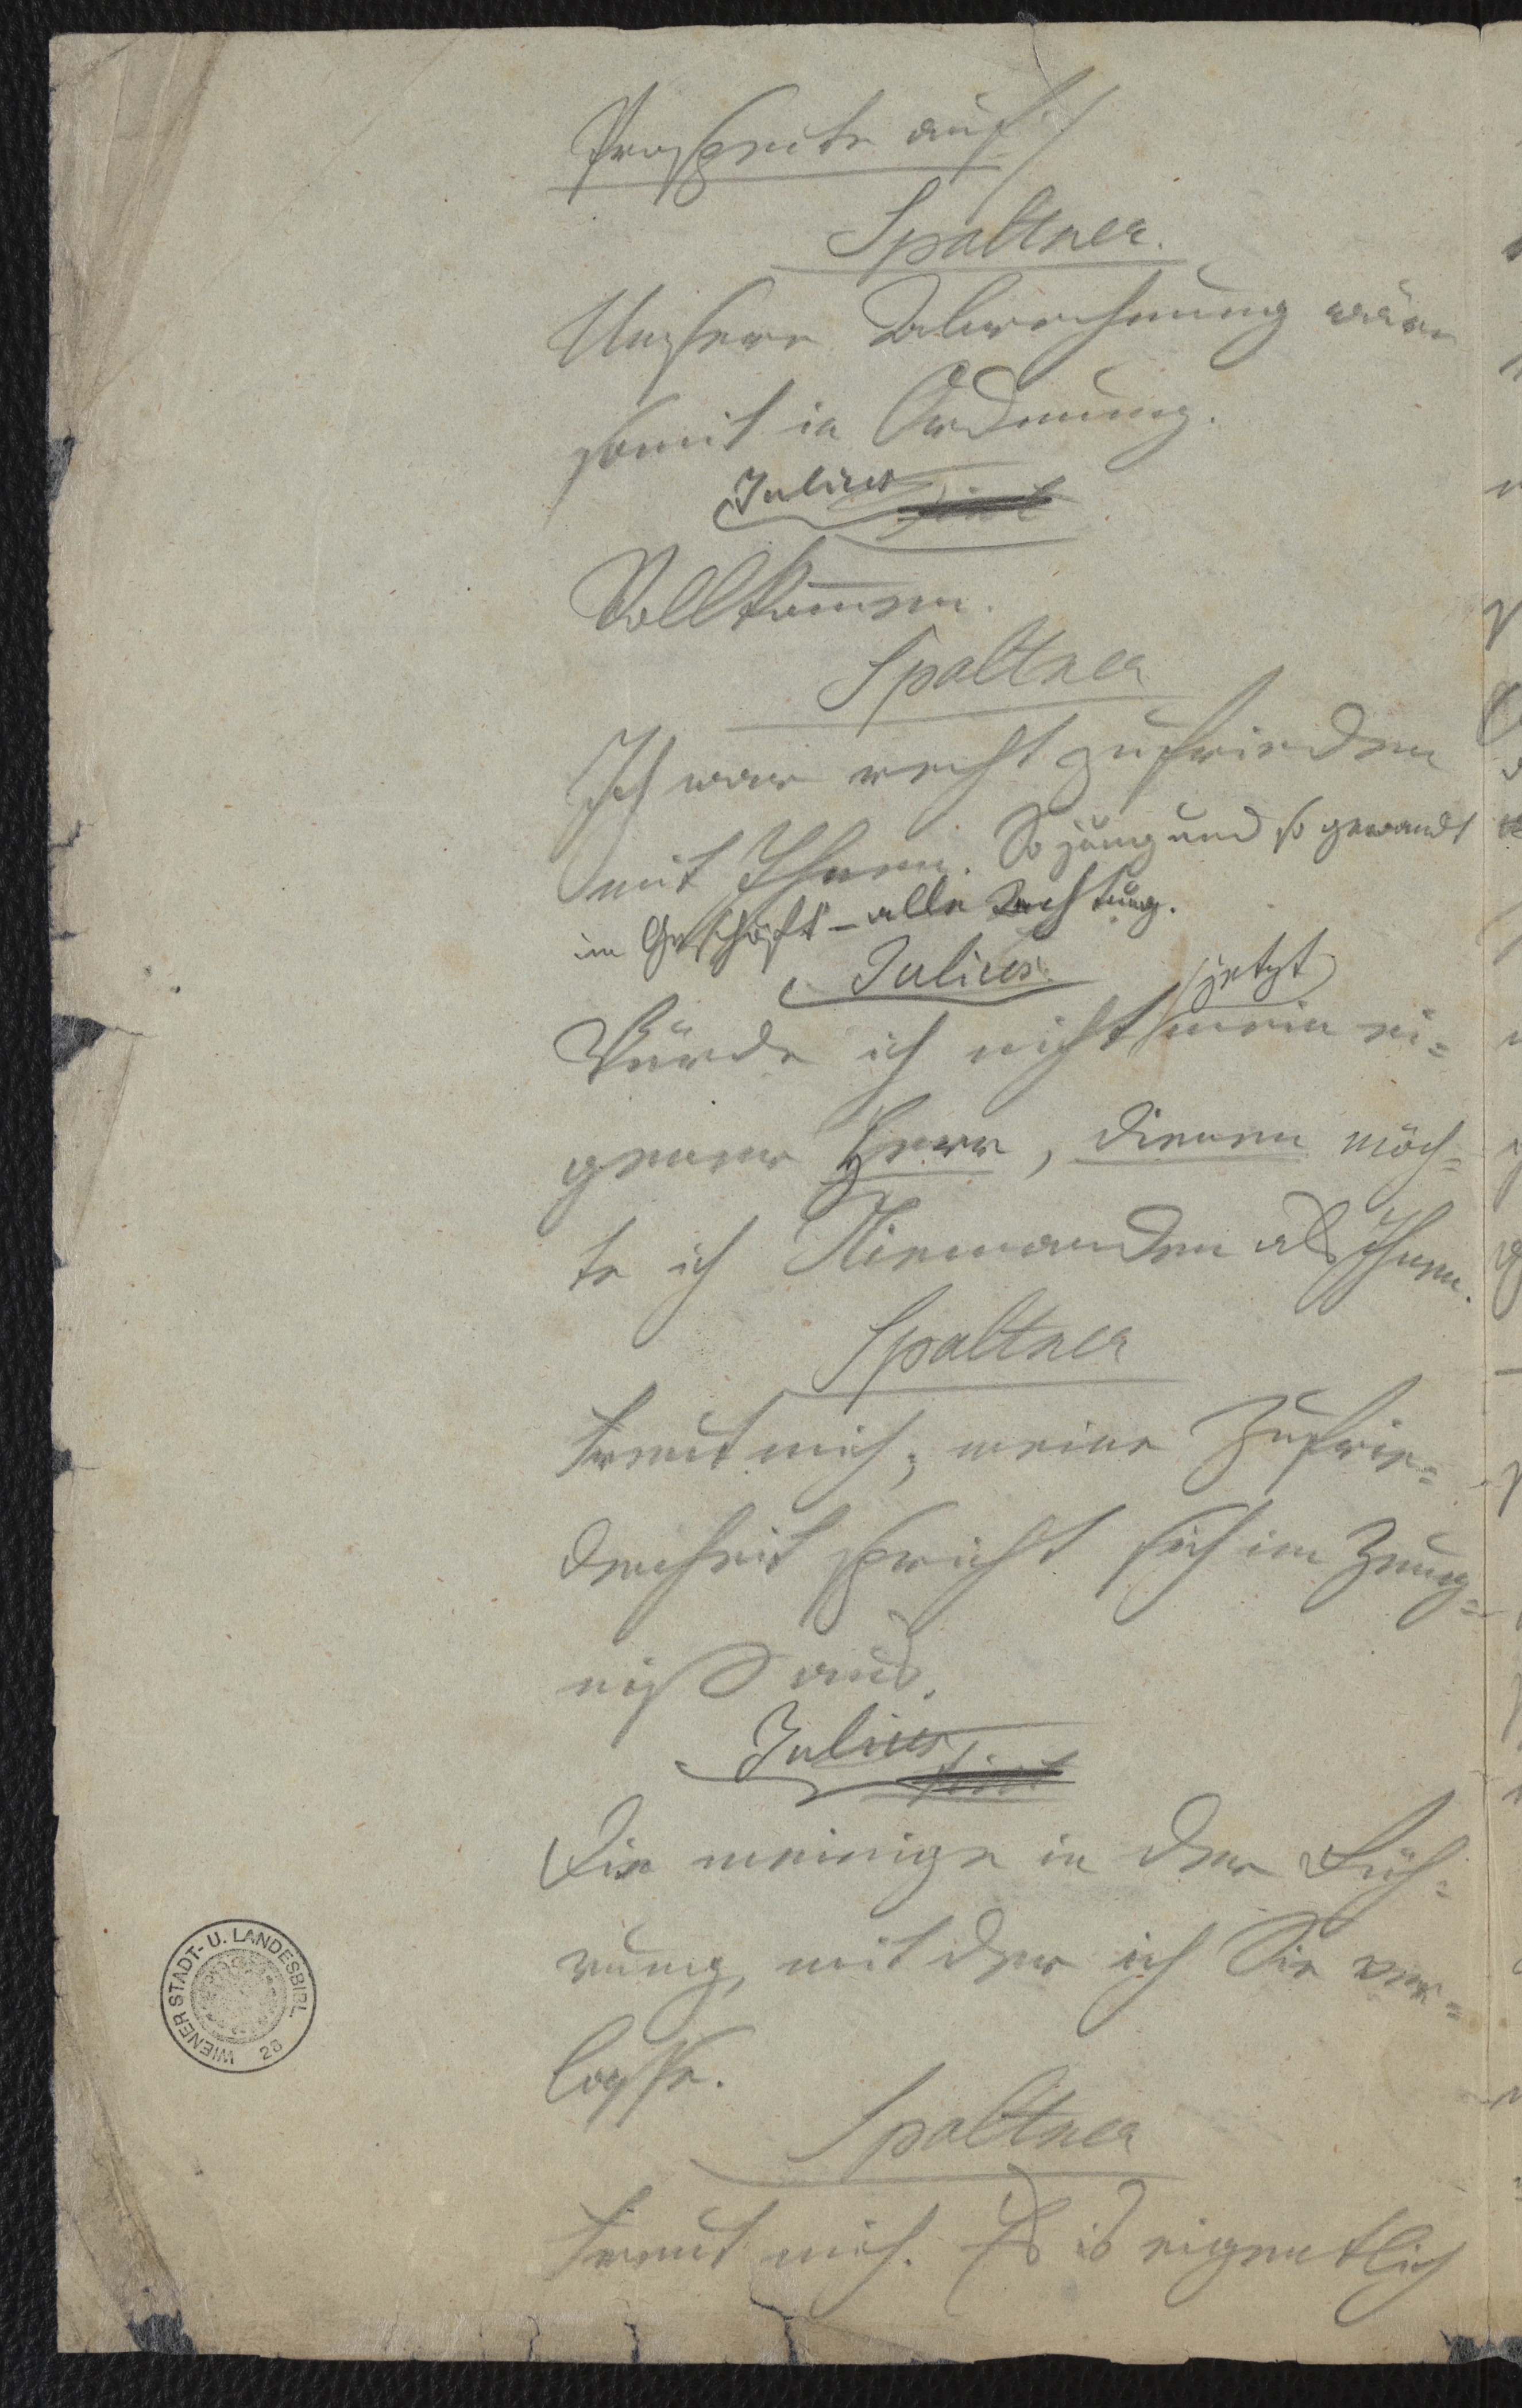 Prospecte auf:/
Spaltner.
Unsere Abrechnung wäre
somit in Ordnung.
Julius
Vollkommen.
Spaltner
Ich war recht zufrieden
mit Ihnen. So jung und so gewandt
im Geschäft – alle Achtung.
Julius.
jetzt
Würde ich nicht mein ei=
gener Herr, dienen möch=
te ich Niemanden als Ihnen.
Spaltner
Freut mich, meine Zufrie=
denheit spricht sich im Zeug=
niß aus.
Julius
Die meinige in der Rüh=
rung, mit der ich Sie ver=
lasse.
Spaltner
Freut mich. Es is eigentlich
WIENER STADT- U. LANDESBIBL.
26